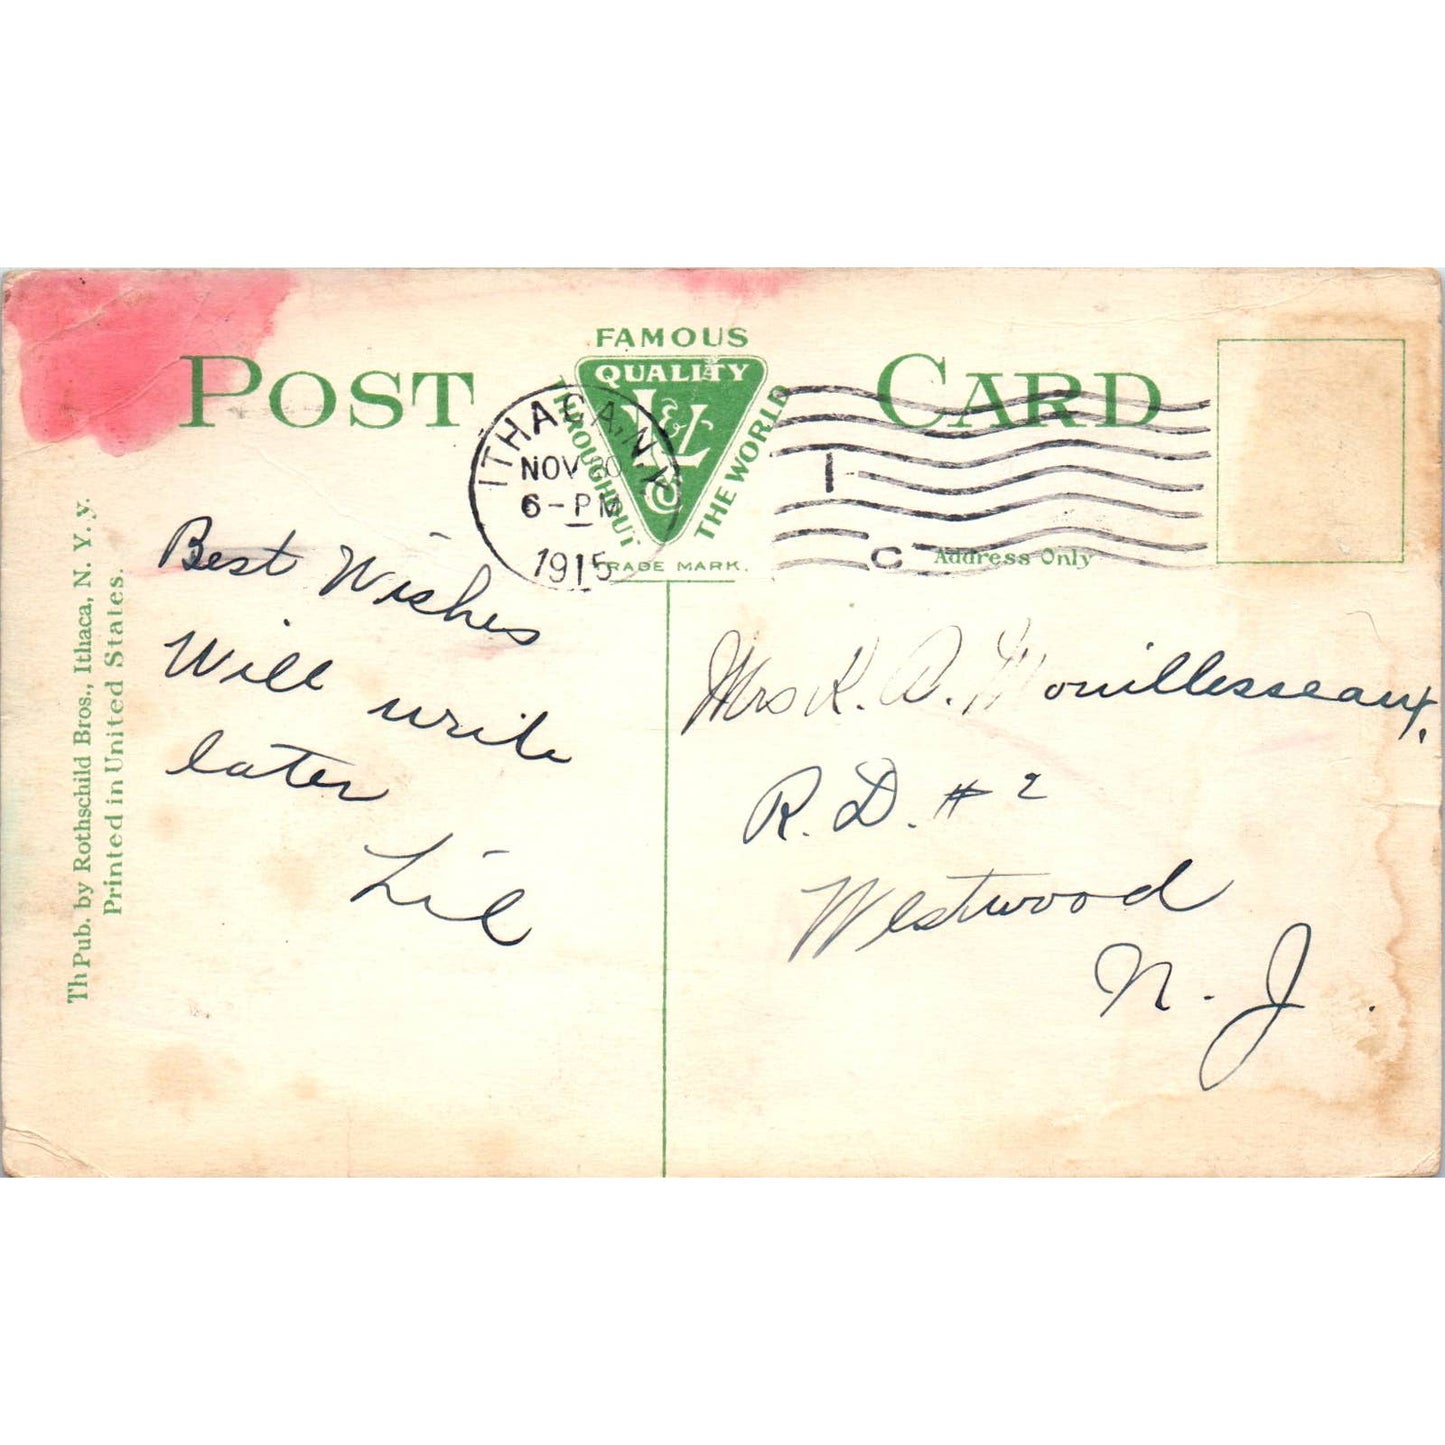 POST CARD
FAMOUS
QUALITY
THROUGHOUT
THE WORLD
L&L
TRADE MARK.
ITHACA, N.Y.
NOV
6-PM
1915
1
C
Address Only
Th Pub. by Rothschild Bros., Ithaca, N. Y. y.
Printed in United States.
Best Wishes
Will write
later
Lil
Mrs K. A. Mouillesseaux.
R. D. # 2
Westwood
N. J.